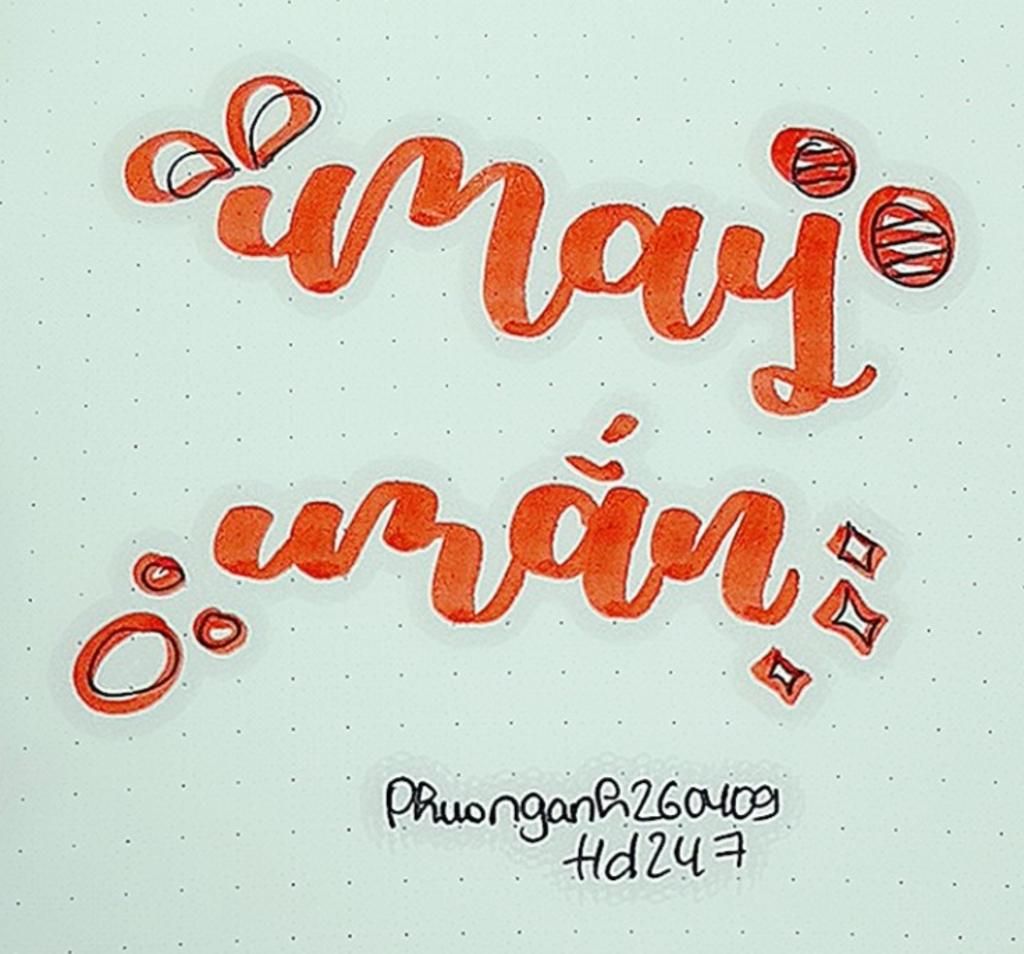 may
mắn
Phuonganh260409
Hd247